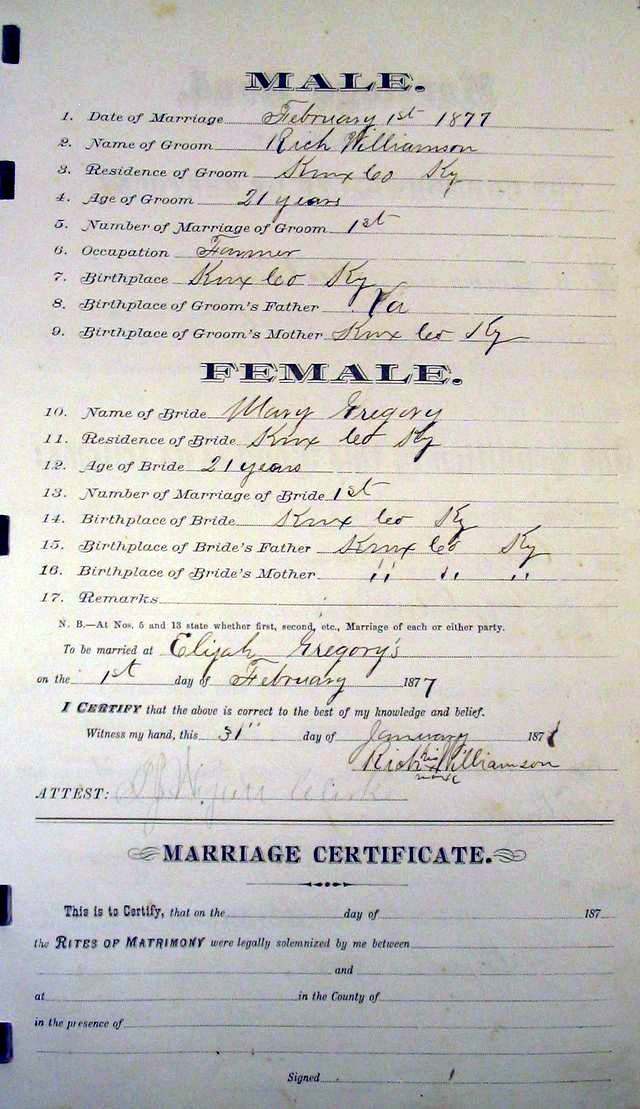 MALE.
1. Date of Marriage February 1st 1877
2. Name of Groom Rich Williamson
3. Residence of Groom Knx Co Ky
4. Age of Groom 21 years
5. Number of Marriage of Groom 1st
6. Occupation Farmer
7. Birthplace Knx Co Ky
8. Birthplace of Groom's Father Va
9. Birthplace of Groom's Mother Knx Co Ky
FEMALE.
10. Name of Bride Mary Gregory
11. Residence of Bride Knx Co Ky
12. Age of Bride 21 years
13. Number of Marriage of Bride 1st
14. Birthplace of Bride Knx Co Ky
15. Birthplace of Bride's Father Knx Co Ky
16. Birthplace of Bride's Mother " " "
17. Remarks
N. B.—At Nos. 5 and 13 state whether first, second, etc., Marriage of each or either party.
To be married at Elijah Gregory's
on the 1st day of February 1877
I CERTIFY that the above is correct to the best of my knowledge and belief.
Witness my hand, this 31" day of January 187
Rich his x mark Williamson
ATTEST: Clerk
MARRIAGE CERTIFICATE.
This is to Certify, that on the day of 187
the RITES OF MATRIMONY were legally solemnized by me between
and
at in the County of
in the presence of
Signed